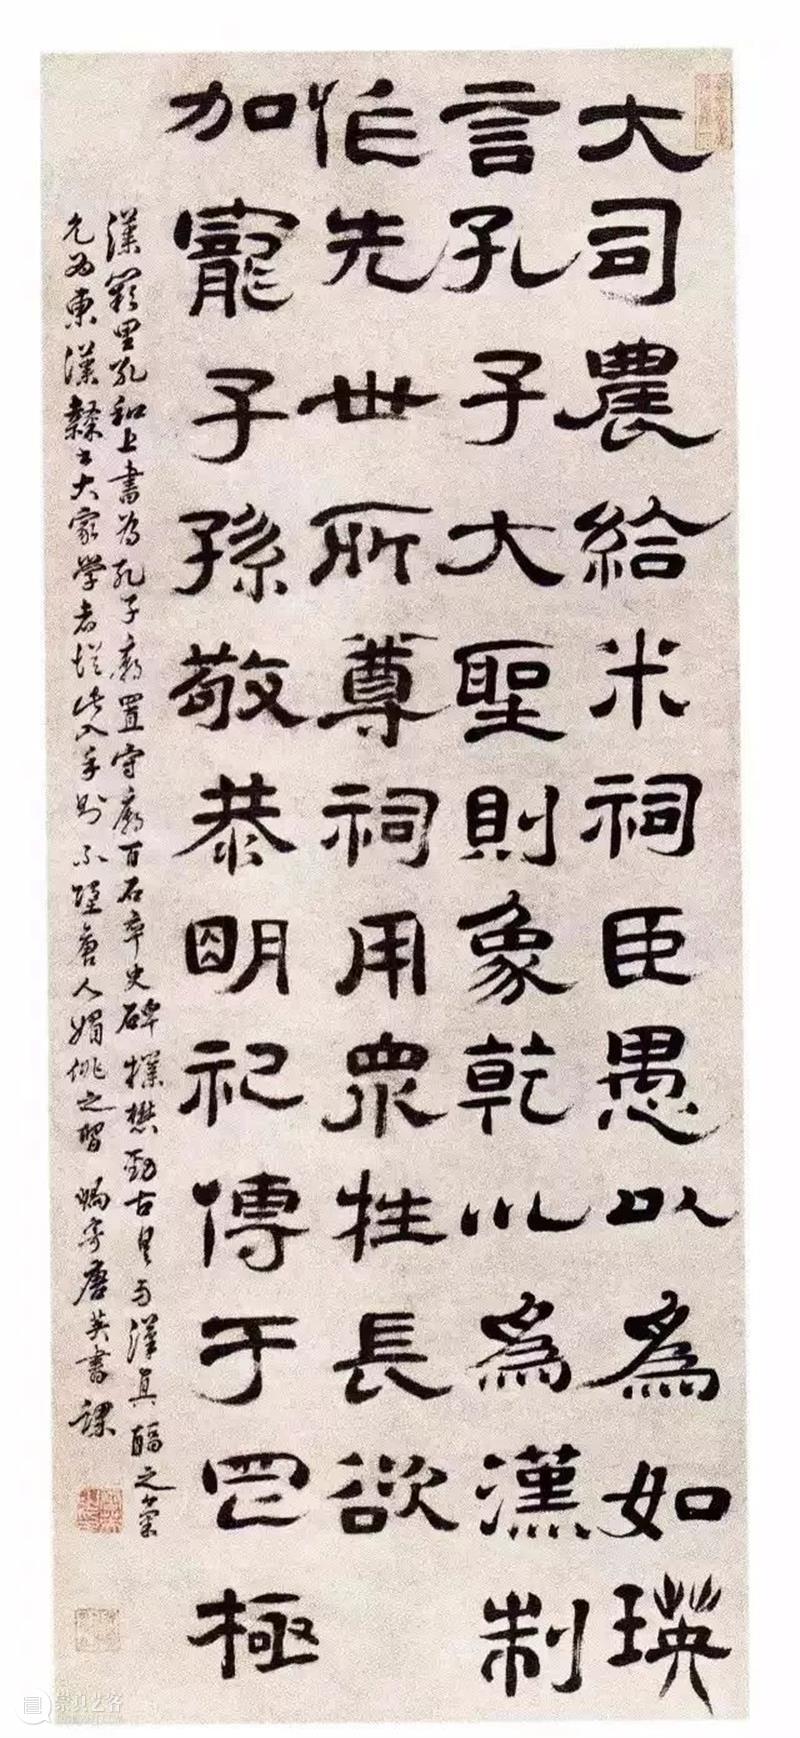 大司農給米祠臣愚以為如瑛
言孔子大聖則象乾以為漢制
怍先世所尊祠用眾牲長欲
加寵子孫敬恭明祀傳于罔極
漢闕里孔和上書為孔子廟置守廟百石卒史碑樸懋勁古具漢真之氣
允為東漢隸書大家學者從此入手則不墮唐人媚佻之習 蝸寄唐英書課
崇真艺客